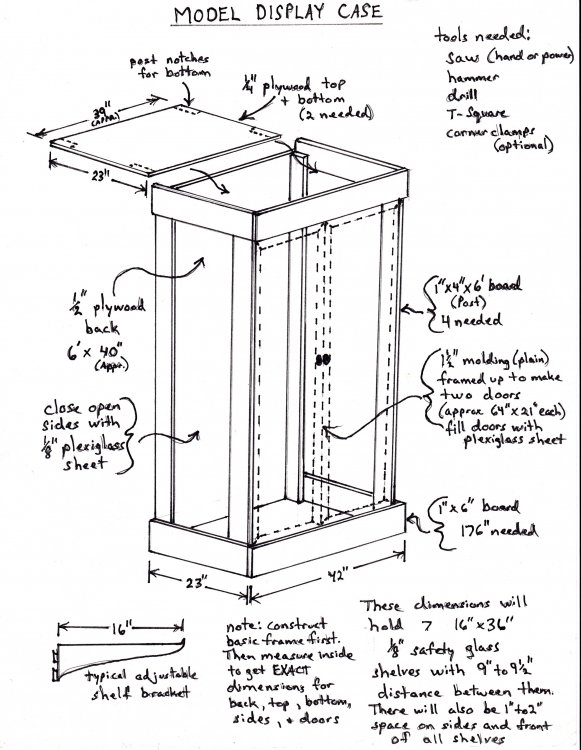 MODEL DISPLAY CASE
tools needed:
saw (hand or power)
hammer
drill
T-Square
corner clamps
(optional)
post notches
for bottom
1/4" plywood top
+ bottom
(2 needed)
39"
23"
1/2" plywood
back
6' x 40"
(Appr.)
close open
sides with
1/8" plexiglass
sheet
1"x4"x6' board
(Post)
4 needed
1 1/2" molding (plain)
framed up to make
two doors
(approx 64"x21" each)
fill doors with
plexiglass sheet
1"x6" board
176" needed
23"
42"
16"
typical adjustable
shelf bracket
note: construct
basic frame first.
Then measure inside
to get EXACT
dimensions for
back, top, bottom,
sides, + doors
These dimensions will
hold 7 16"x36"
1/8" safety glass
shelves with 9" to 9 1/2"
distance between them.
There will also be 1" to 2"
space on sides and front
of all shelves